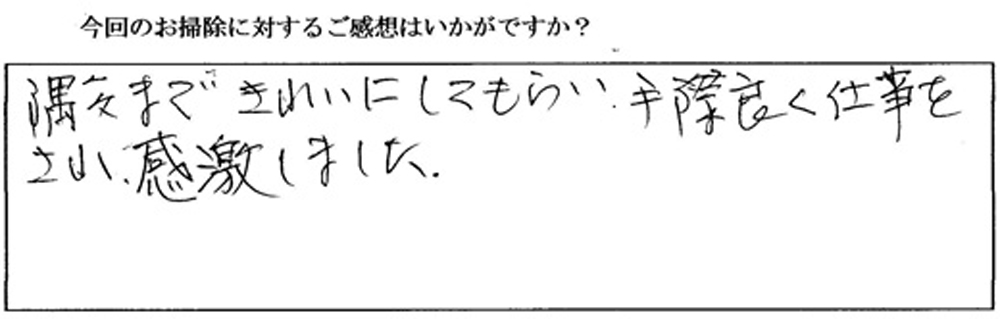 今回のお掃除に対するご感想はいかがですか？
隅々まできれいにしてもらい、手際良く仕事を
され、感激しました。